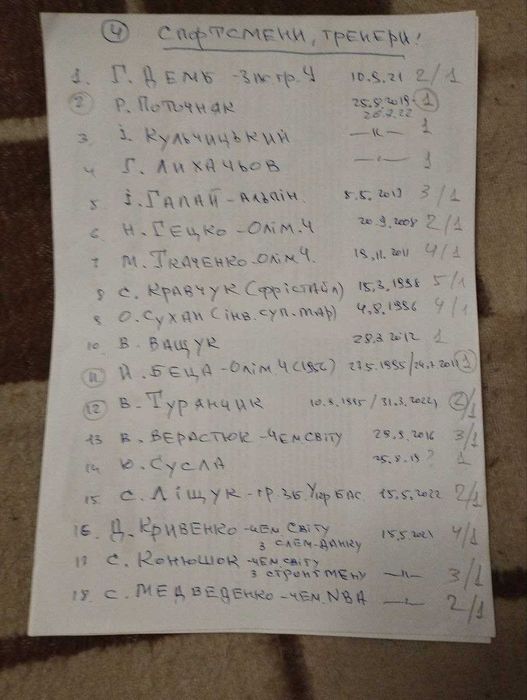 4 СПОРТСМЕНИ, ТРЕНЕРИ!
1. Г. ДЕМБ 10.5.21 2/1
2 Р. ПОТОЧНАК 25.8.2019 1
20.2.22
3 І. КУЛЬЧИЦЬКИЙ —||— 1
4 Г. ЛИХАЧЬОВ —||— 1
5 І. ГАЛАЙ-АЛЬПІН. 5.5.2013 3/1
6 Н. ГЕЦКО-ОЛІМ.Ч 20.9.2008 2/1
7 М. ТКАЧЕНКО-ОЛІМ Ч. 18.11.2011 4/1
8 С. КРАВЧУК (ФРІСТАЙЛ) 15.3.1998 5/1
9 О. СУХАН (ІНВ. СУП. МАР) 4.8.1996 4/1
10 В. ВАЩУК 28.3.2012 1
11 Й. БЕЦА-ОЛІМ.Ч (1956) 27.5.1995/24.7.2011 1
12 В. ТУРЯНЧИК 10.8.1995/31.3.2022 2/1
13 В. ВЕРАСТЮК-ЧЕМ СВІТУ 28.9.2016 3/1
14 Ю. СУСЛА 25.8.19? 1
15 С. ЛІЩУК-ГР. ЗБ. УКР БАС. 15.5.2022 2/1
16 Д. КРИВЕНКО-ЧЕМ СВІТУ 15.5.2021 4/1
З СЛЕМ-ДАНКУ
17 С. КОНЮШОК-ЧЕМ СВІТУ —||— 3/1
З СТРОНГМЕНУ
18. С. МЕДВЕДЕНКО-ЧЕМ. NBA —||— 2/1